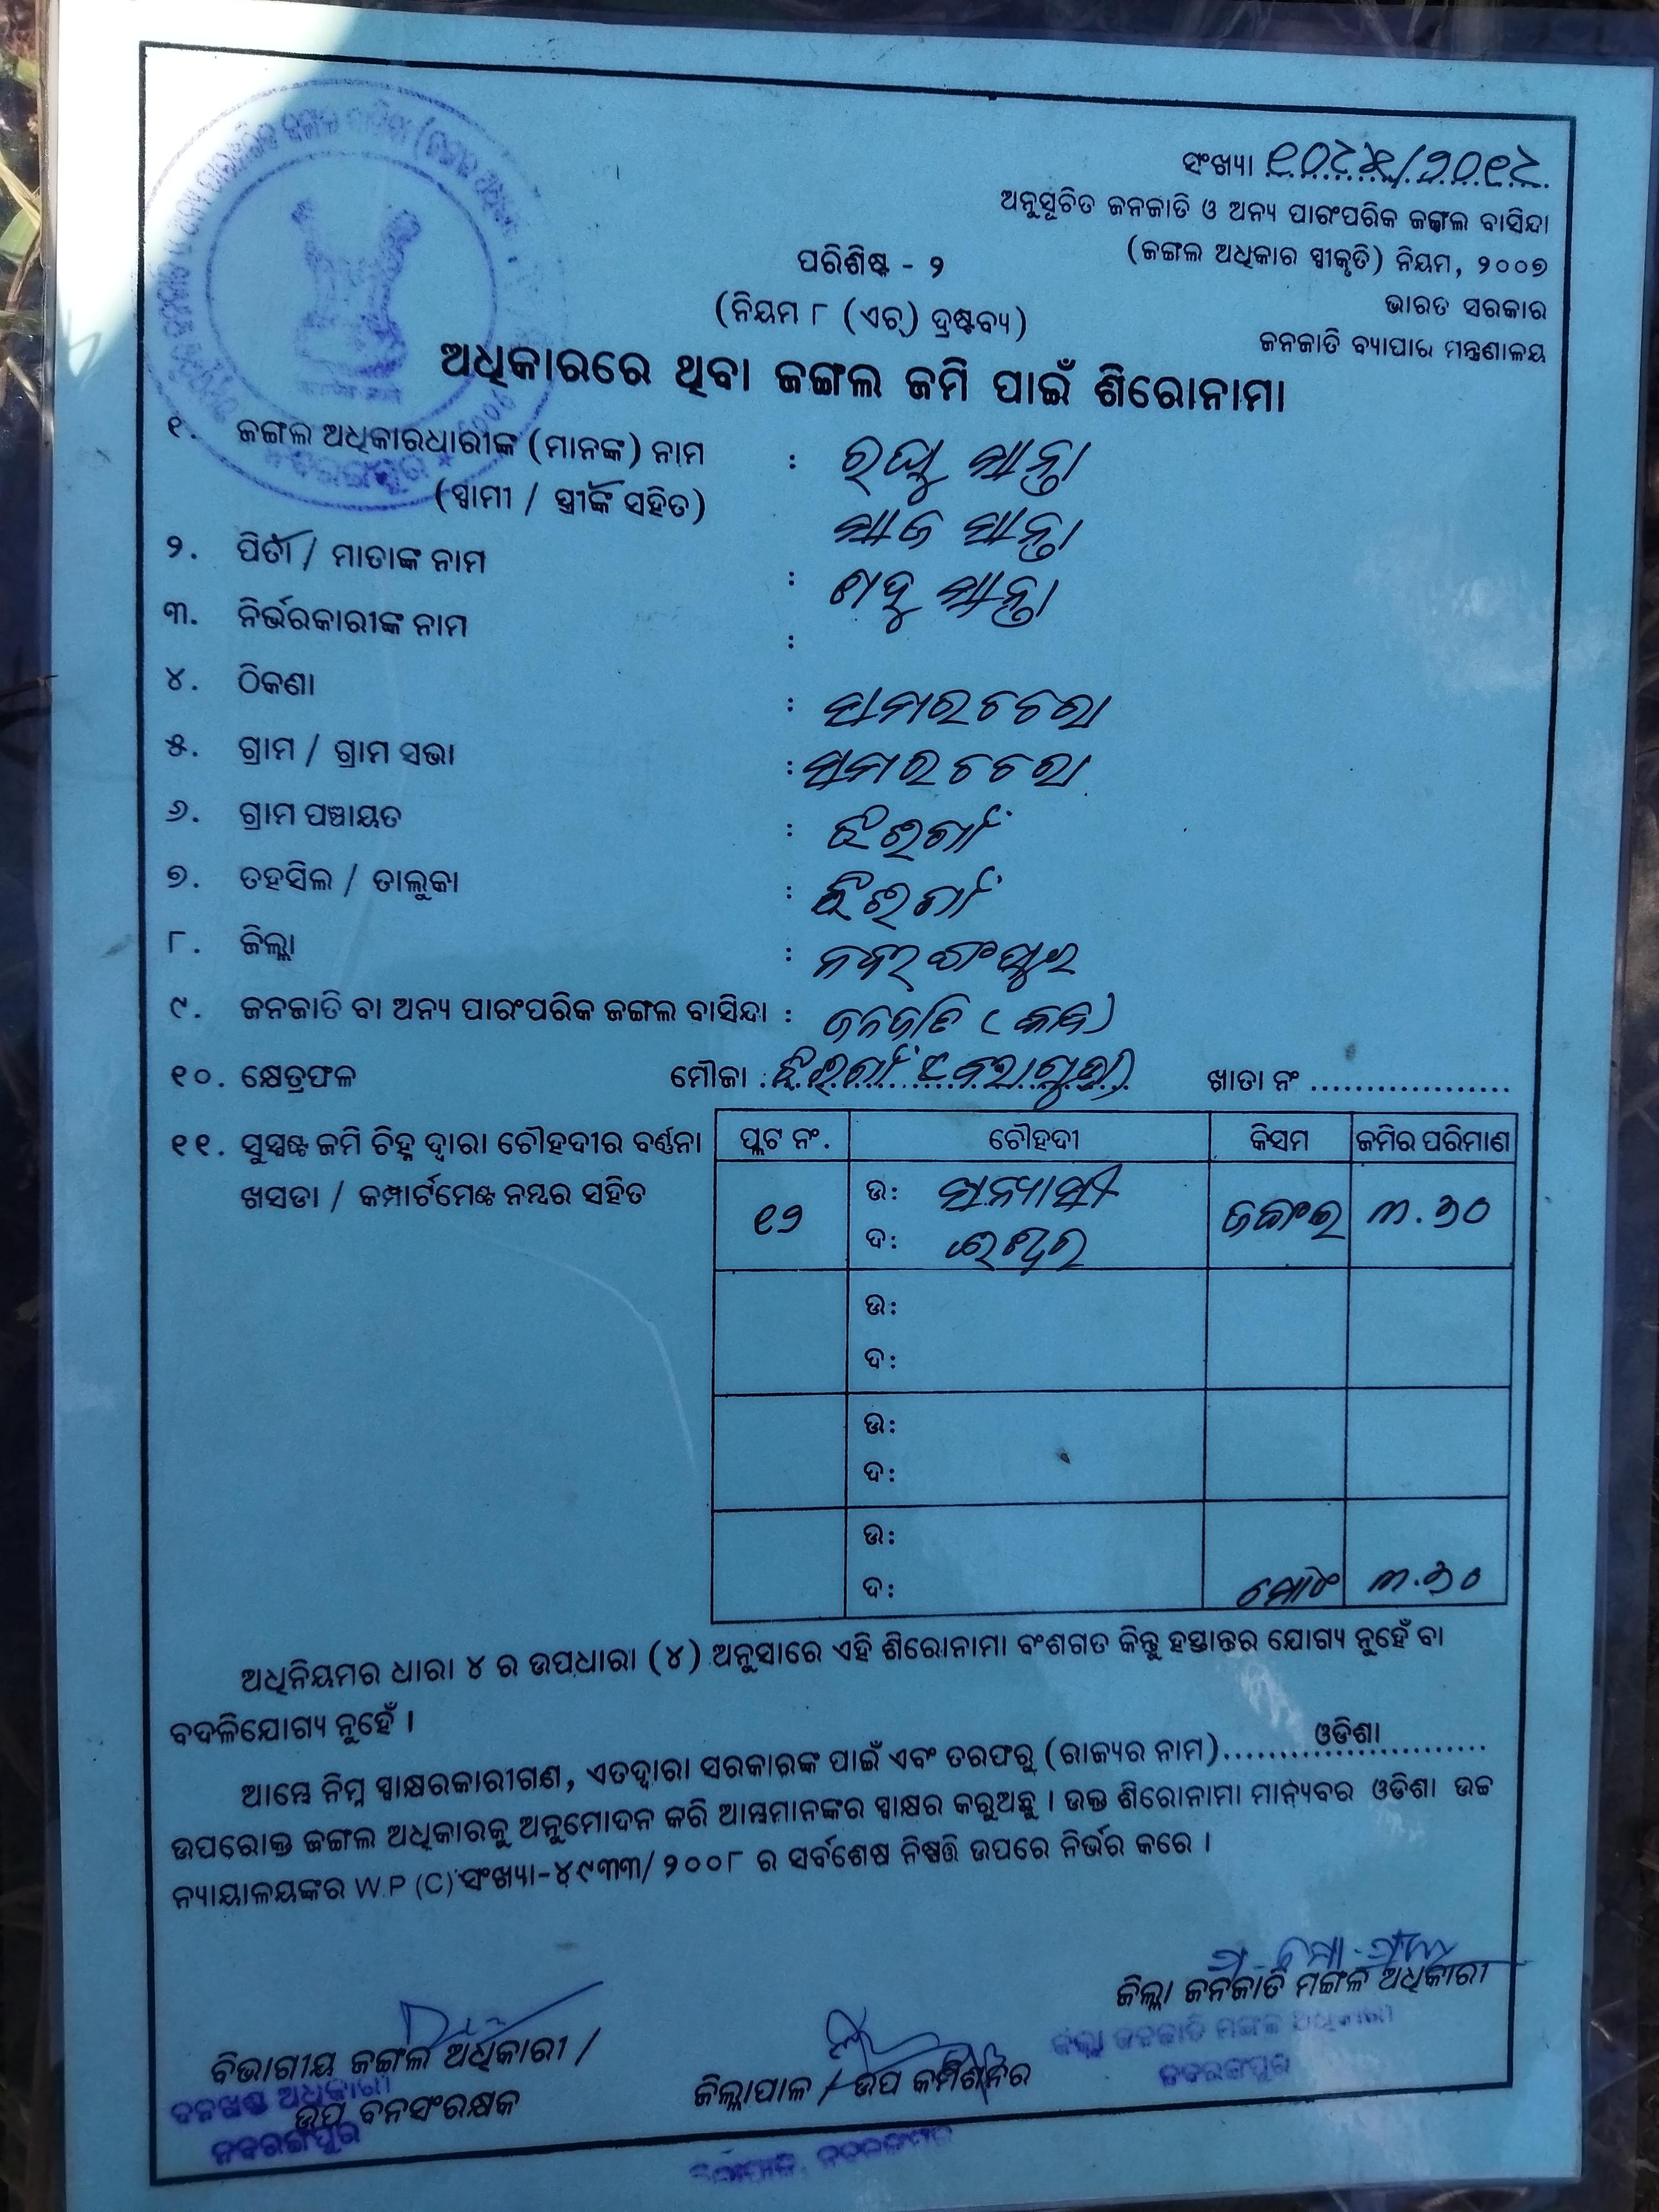 ସଂଖ୍ୟା
ଅନୁସୂଚିତ ଜନଜାତି ଓ ଅନ୍ୟ ପାରଂପରିକ ଜଙ୍ଗଲ ବାସିନ୍ଦା
(ଜଙ୍ଗଲ ଅଧିକାର ସ୍ୱୀକୃତି) ନିୟମ, ୨୦୦୭
ଭାରତ ସରକାର
ଜନଜାତି ବ୍ୟାପାର ମନ୍ତ୍ରଣାଳୟ
ପରିଶିଷ୍ଟ - ୨
(ନିୟମ ୮ (ଏଚ୍) ଦ୍ରଷ୍ଟବ୍ୟ)
ଅଧିକାରରେ ଥିବା ଜଙ୍ଗଲ ଜମି ପାଇଁ ଶିରୋନାମା
୧. ଜଙ୍ଗଲ ଅଧିକାରଧାରୀଙ୍କ (ମାନଙ୍କ) ନାମ :
(ସ୍ୱାମୀ / ସ୍ତ୍ରୀଙ୍କ ସହିତ)
୨. ପିତା / ମାତାଙ୍କ ନାମ :
୩. ନିର୍ଭରକାରୀଙ୍କ ନାମ :
୪. ଠିକଣା :
୫. ଗ୍ରାମ / ଗ୍ରାମ ସଭା :
୬. ଗ୍ରାମ ପଞ୍ଚାୟତ : ଝରିଗାଁ
୭. ତହସିଲ / ତାଲୁକା : ଝରିଗାଁ
୮. ଜିଲ୍ଲା : ନବରଂଗପୁର
୯. ଜନଜାତି ବା ଅନ୍ୟ ପାରଂପରିକ ଜଙ୍ଗଲ ବାସିନ୍ଦା : ଜନଜାତି
୧୦. କ୍ଷେତ୍ରଫଳ ମୌଜା ଖାତା ନଂ ..................
୧୧. ସୁସ୍ପଷ୍ଟ ଜମି ଚିହ୍ନ ଦ୍ୱାରା ଚୌହଦୀର ବର୍ଣ୍ଣନା
ଖସଡା / କମ୍ପାର୍ଟମେଣ୍ଟ ନମ୍ବର ସହିତ
ପ୍ଲଟ ନଂ. ଚୌହଦୀ କିସମ ଜମିର ପରିମାଣ
୧୨ ଉ: ସନ୍ୟାସୀ ଜଙ୍ଗଲ ୩.୬୦
ଦ: ଈଶ୍ୱର
ଉ:
ଦ:
ଉ:
ଦ:
ଉ:
ଦ: ମୋଟ ୩.୬୦
ଅଧିନିୟମର ଧାରା ୪ ର ଉପଧାରା (୪) ଅନୁସାରେ ଏହି ଶିରୋନାମା ବଂଶଗତ କିନ୍ତୁ ହସ୍ତାନ୍ତର ଯୋଗ୍ୟ ନୁହେଁ ବା
ବଦଳିଯୋଗ୍ୟ ନୁହେଁ ।
ଆମ୍ଭେ ନିମ୍ନ ସ୍ୱାକ୍ଷରକାରୀଗଣ, ଏତଦ୍ୱାରା ସରକାରଙ୍କ ପାଇଁ ଏବଂ ତରଫରୁ (ରାଜ୍ୟର ନାମ) ଓଡିଶା
ଉପରୋକ୍ତ ଜଙ୍ଗଲ ଅଧିକାରକୁ ଅନୁମୋଦନ କରି ଆମ୍ଭମାନଙ୍କର ସ୍ୱାକ୍ଷର କରୁଅଛୁ । ଉକ୍ତ ଶିରୋନାମା ମାନ୍ୟବର ଓଡିଶା ଉଚ୍ଚ
ନ୍ୟାୟାଳୟଙ୍କର W.P (C) ସଂଖ୍ୟା-୪୯୩୩/୨୦୦୮ ର ସର୍ବଶେଷ ନିଷ୍ପତ୍ତି ଉପରେ ନିର୍ଭର କରେ ।
ଜିଲ୍ଲା ଜନଜାତି ମଙ୍ଗଳ ଅଧିକାରୀ
ଜିଲ୍ଲା ଜନଜାତି ମଙ୍ଗଳ ଅଧିକାରୀ
ନବରଙ୍ଗପୁର
ବିଭାଗୀୟ ଜଙ୍ଗଲ ଅଧିକାରୀ /
ଉପ ବନସଂରକ୍ଷକ
ବନଖଣ୍ଡ ଅଧିକାରୀ
ନବରଙ୍ଗପୁର
ଜିଲ୍ଲାପାଳ / ଉପ କମିଶନର
ଜିଲ୍ଲାପାଳ, ନବରଙ୍ଗପୁର